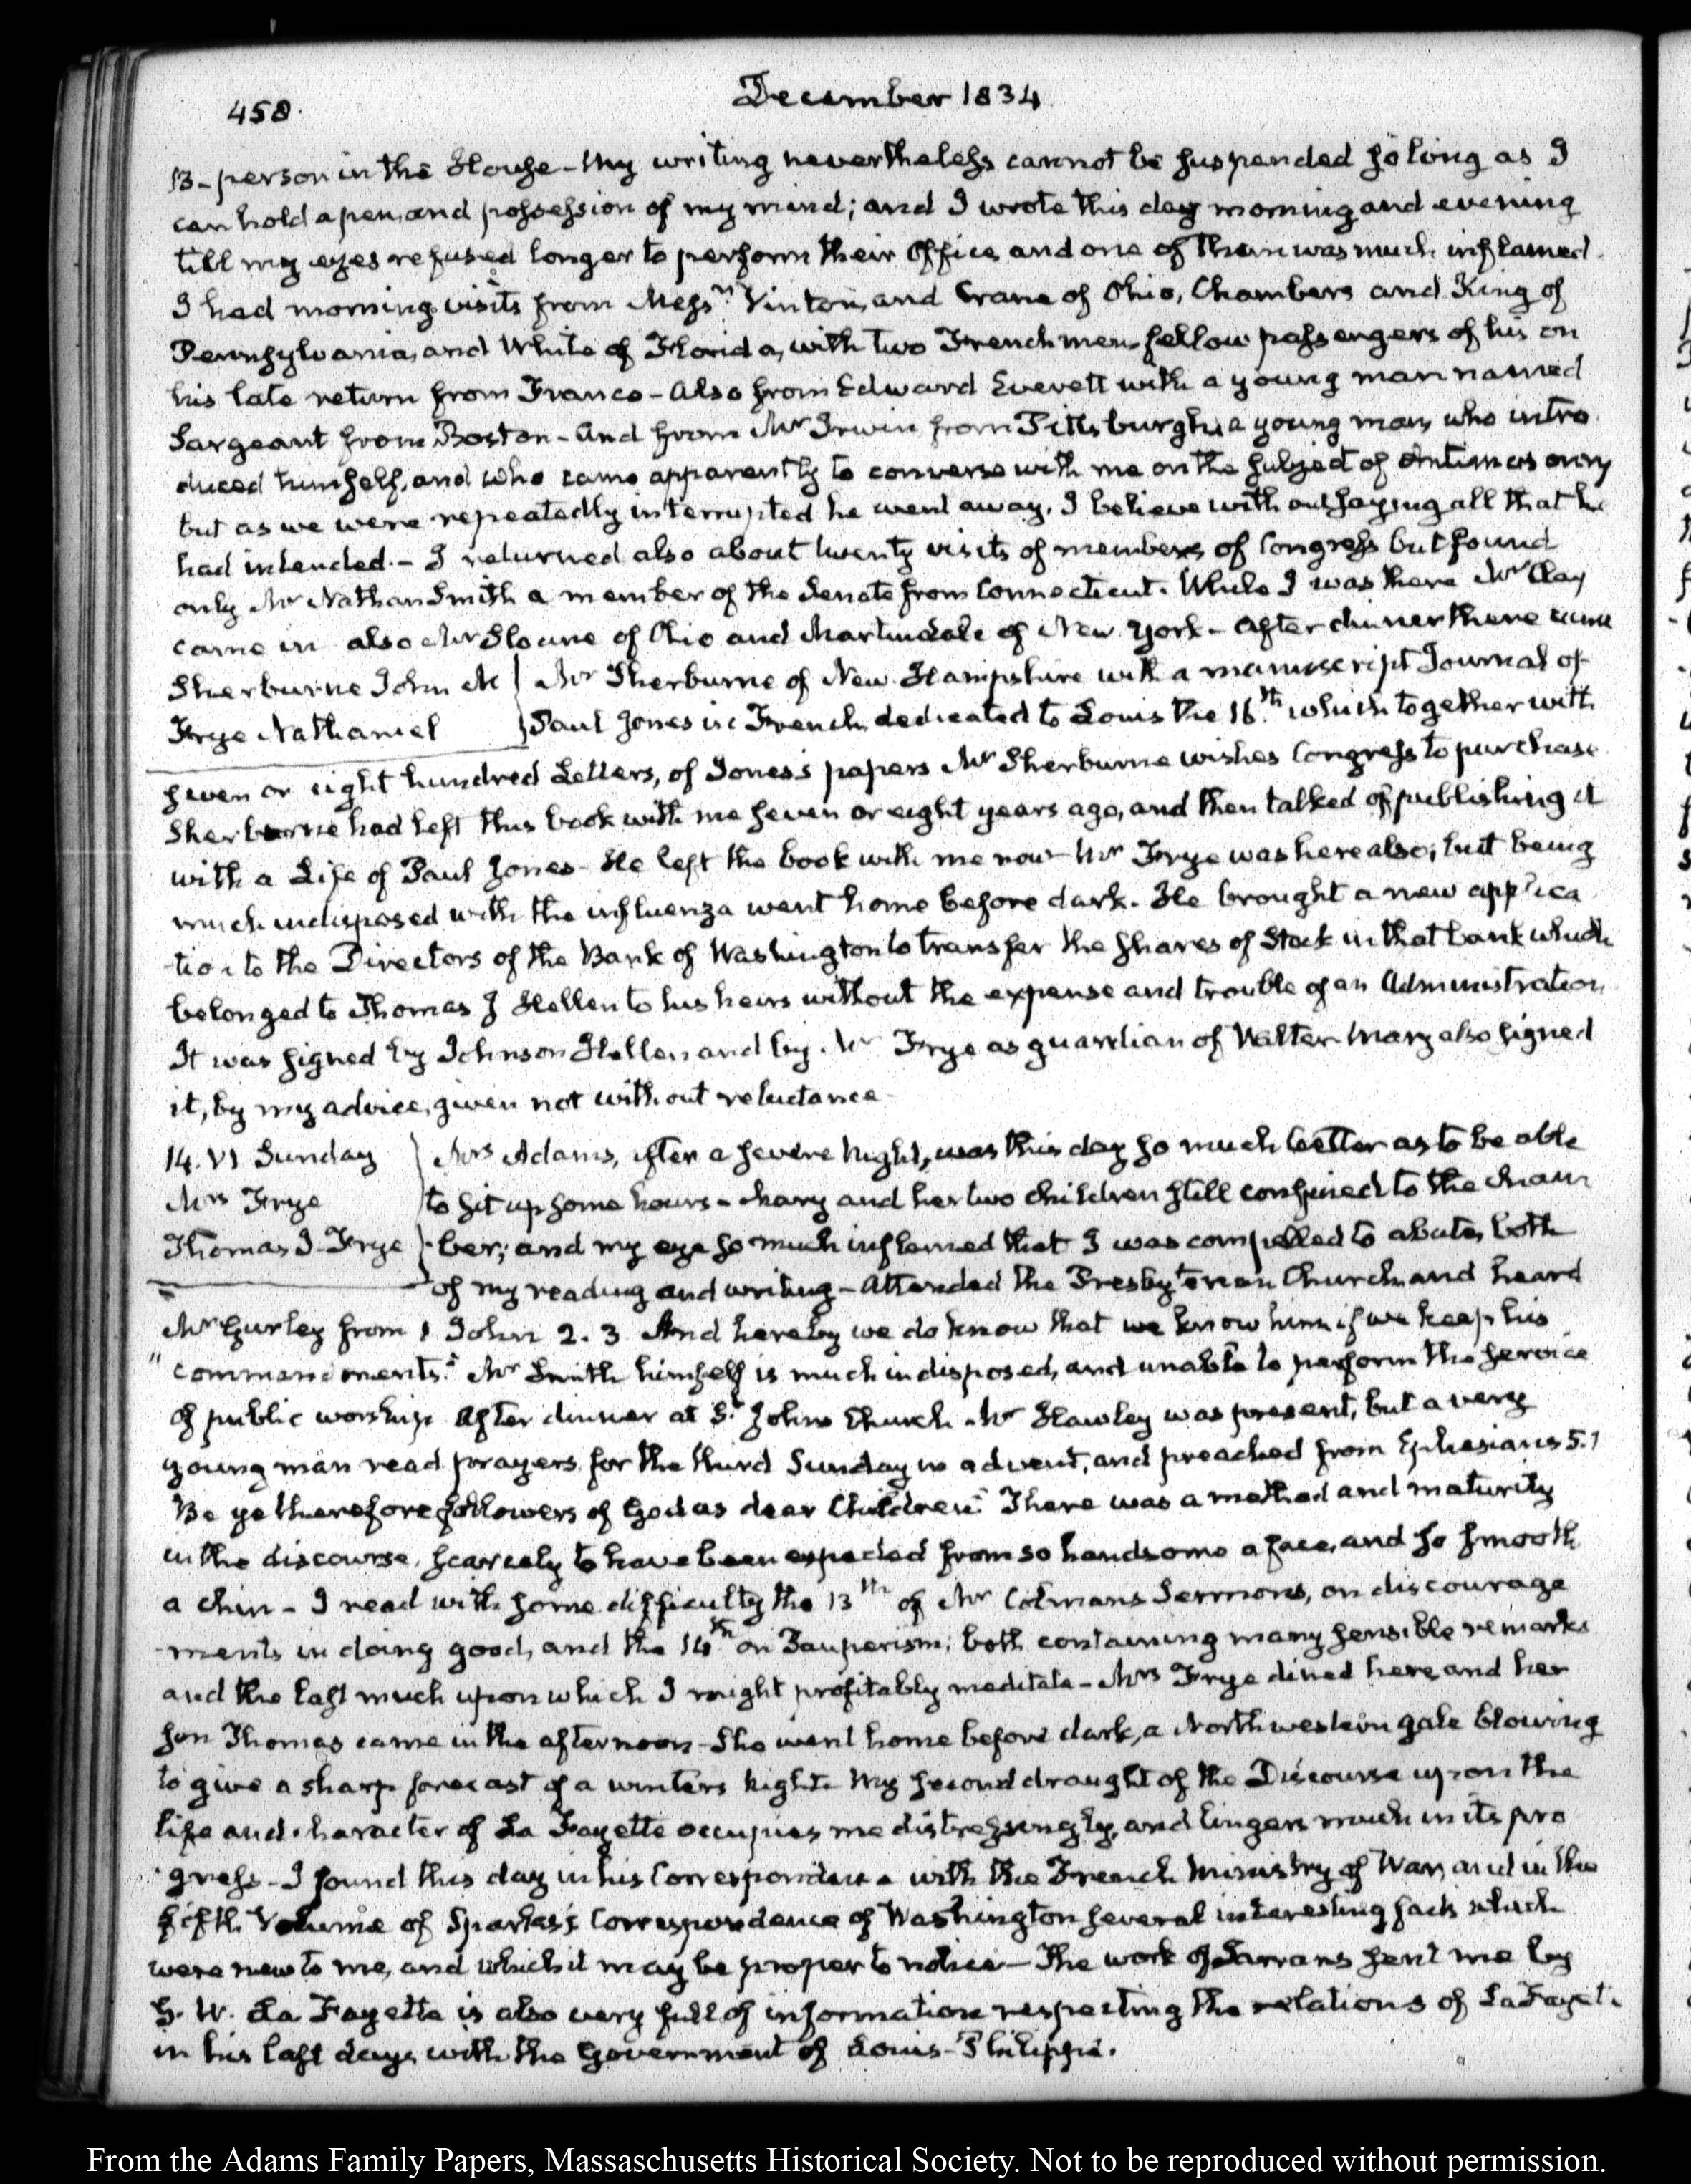 458.
December 1834
13 - person in the House - My writing nevertheless cannot be suspended so long as I
can hold a pen, and possession of my mind; and I wrote this day morning and evening
till my eyes refused longer to perform their Office and one of them was much inflamed.
I had morning visits from Messrs Vinton, and Crane of Ohio, Chambers and King of
Pennsylvania, and White of Florida, with two Frenchmen, fellow passengers of his on
his late return from France - Also from Edward Everett with a young man named
Sargeant from Boston - And from Mr Irwin from Pittsburgh, a young man, who intro
duced himself, and who came apparently to converse with me on the subject of Antimasonry
but as we were repeatedly interrupted he went away, I believe without saying all that he
had intended. - I returned also about twenty visits of members of Congress but found
only Mr Nathan Smith a member of the Senate from Connecticut. While I was there Mr Clay
came in also Mr Sloane of Ohio and Martindale of New York - After dinner there came
Sherburne John M
Frye Nathaniel
Mr Sherburne of New-Hampshire with a manuscript Journal of
Paul Jones in French, dedicated to Louis the 16th. which together with
seven or eight hundred Letters, of Jones's papers Mr Sherburne wishes Congress to purchase
Sherburne had left this book with me seven or eight years ago, and then talked of publishing it
with a Life of Paul Jones - He left the book with me now - Mr Frye was here also; but being
much indisposed with the influenza went home before dark. He brought a new applica
-tion to the Directors of the Bank of Washington to transfer the shares of Stock in that bank which
belonged to Thomas J Hellen to his heirs without the expense and trouble of an Administration
It was signed by Johnson Hellen and by Mr Frye as guardian of Walter - Mary also signed
it, by my advice, given not without reluctance
14. VI Sunday
Mrs Frye
Thomas J. Frye
Mrs Adams, after a severe night, was this day so much better as to be able
to sit up some hours - Mary and her two children still confined to the cham
-ber; and my eye so much inflamed that I was compelled to abate, both
of my reading and writing - Attended the Presbyterian Church and heard
Mr Gurley from 1 John 2. 3 And hereby we do know that we know him if we keep his
"commandments." Mr Smith himself is much indisposed, and unable to perform the service
of public worship After dinner at St. Johns Church Mr Hawley was present, but a very
young man read prayers, for the third Sunday in advent, and preached from Ephesians 5. 1
Be ye therefore followers of God as dear Children." There was a method and maturity
in the discourse, scarcely to have been expected from so handsome a face, and so smooth
a chin - I read with some difficulty the 13th of Mr Colmans Sermons, on discourage
-ments in doing good, and the 14th on Pauperism; both containing many sensible remarks
and the last much upon which I might profitably meditate - Mrs Frye dined here, and her
son Thomas came in the afternoon - She went home before dark, a Northwestern gale blowing
to give a sharp forecast of a winters night. My second draught of the Discourse upon the
life and character of La Fayette occupies me distressingly, and lingers much in its pro
-gress - I found this day in his Correspondence with the French Ministry of War, and in the
fifth Volume of Sparks's Correspondence of Washington several interesting facts which
were new to me, and which it may be proper to notice - The work of Sarrans sent me by
G. W. La Fayette is also very full of information respecting the relations of La Fayette
in his last days, with the Government of Louis-Philippe.
From the Adams Family Papers, Massachusetts Historical Society. Not to be reproduced without permission.